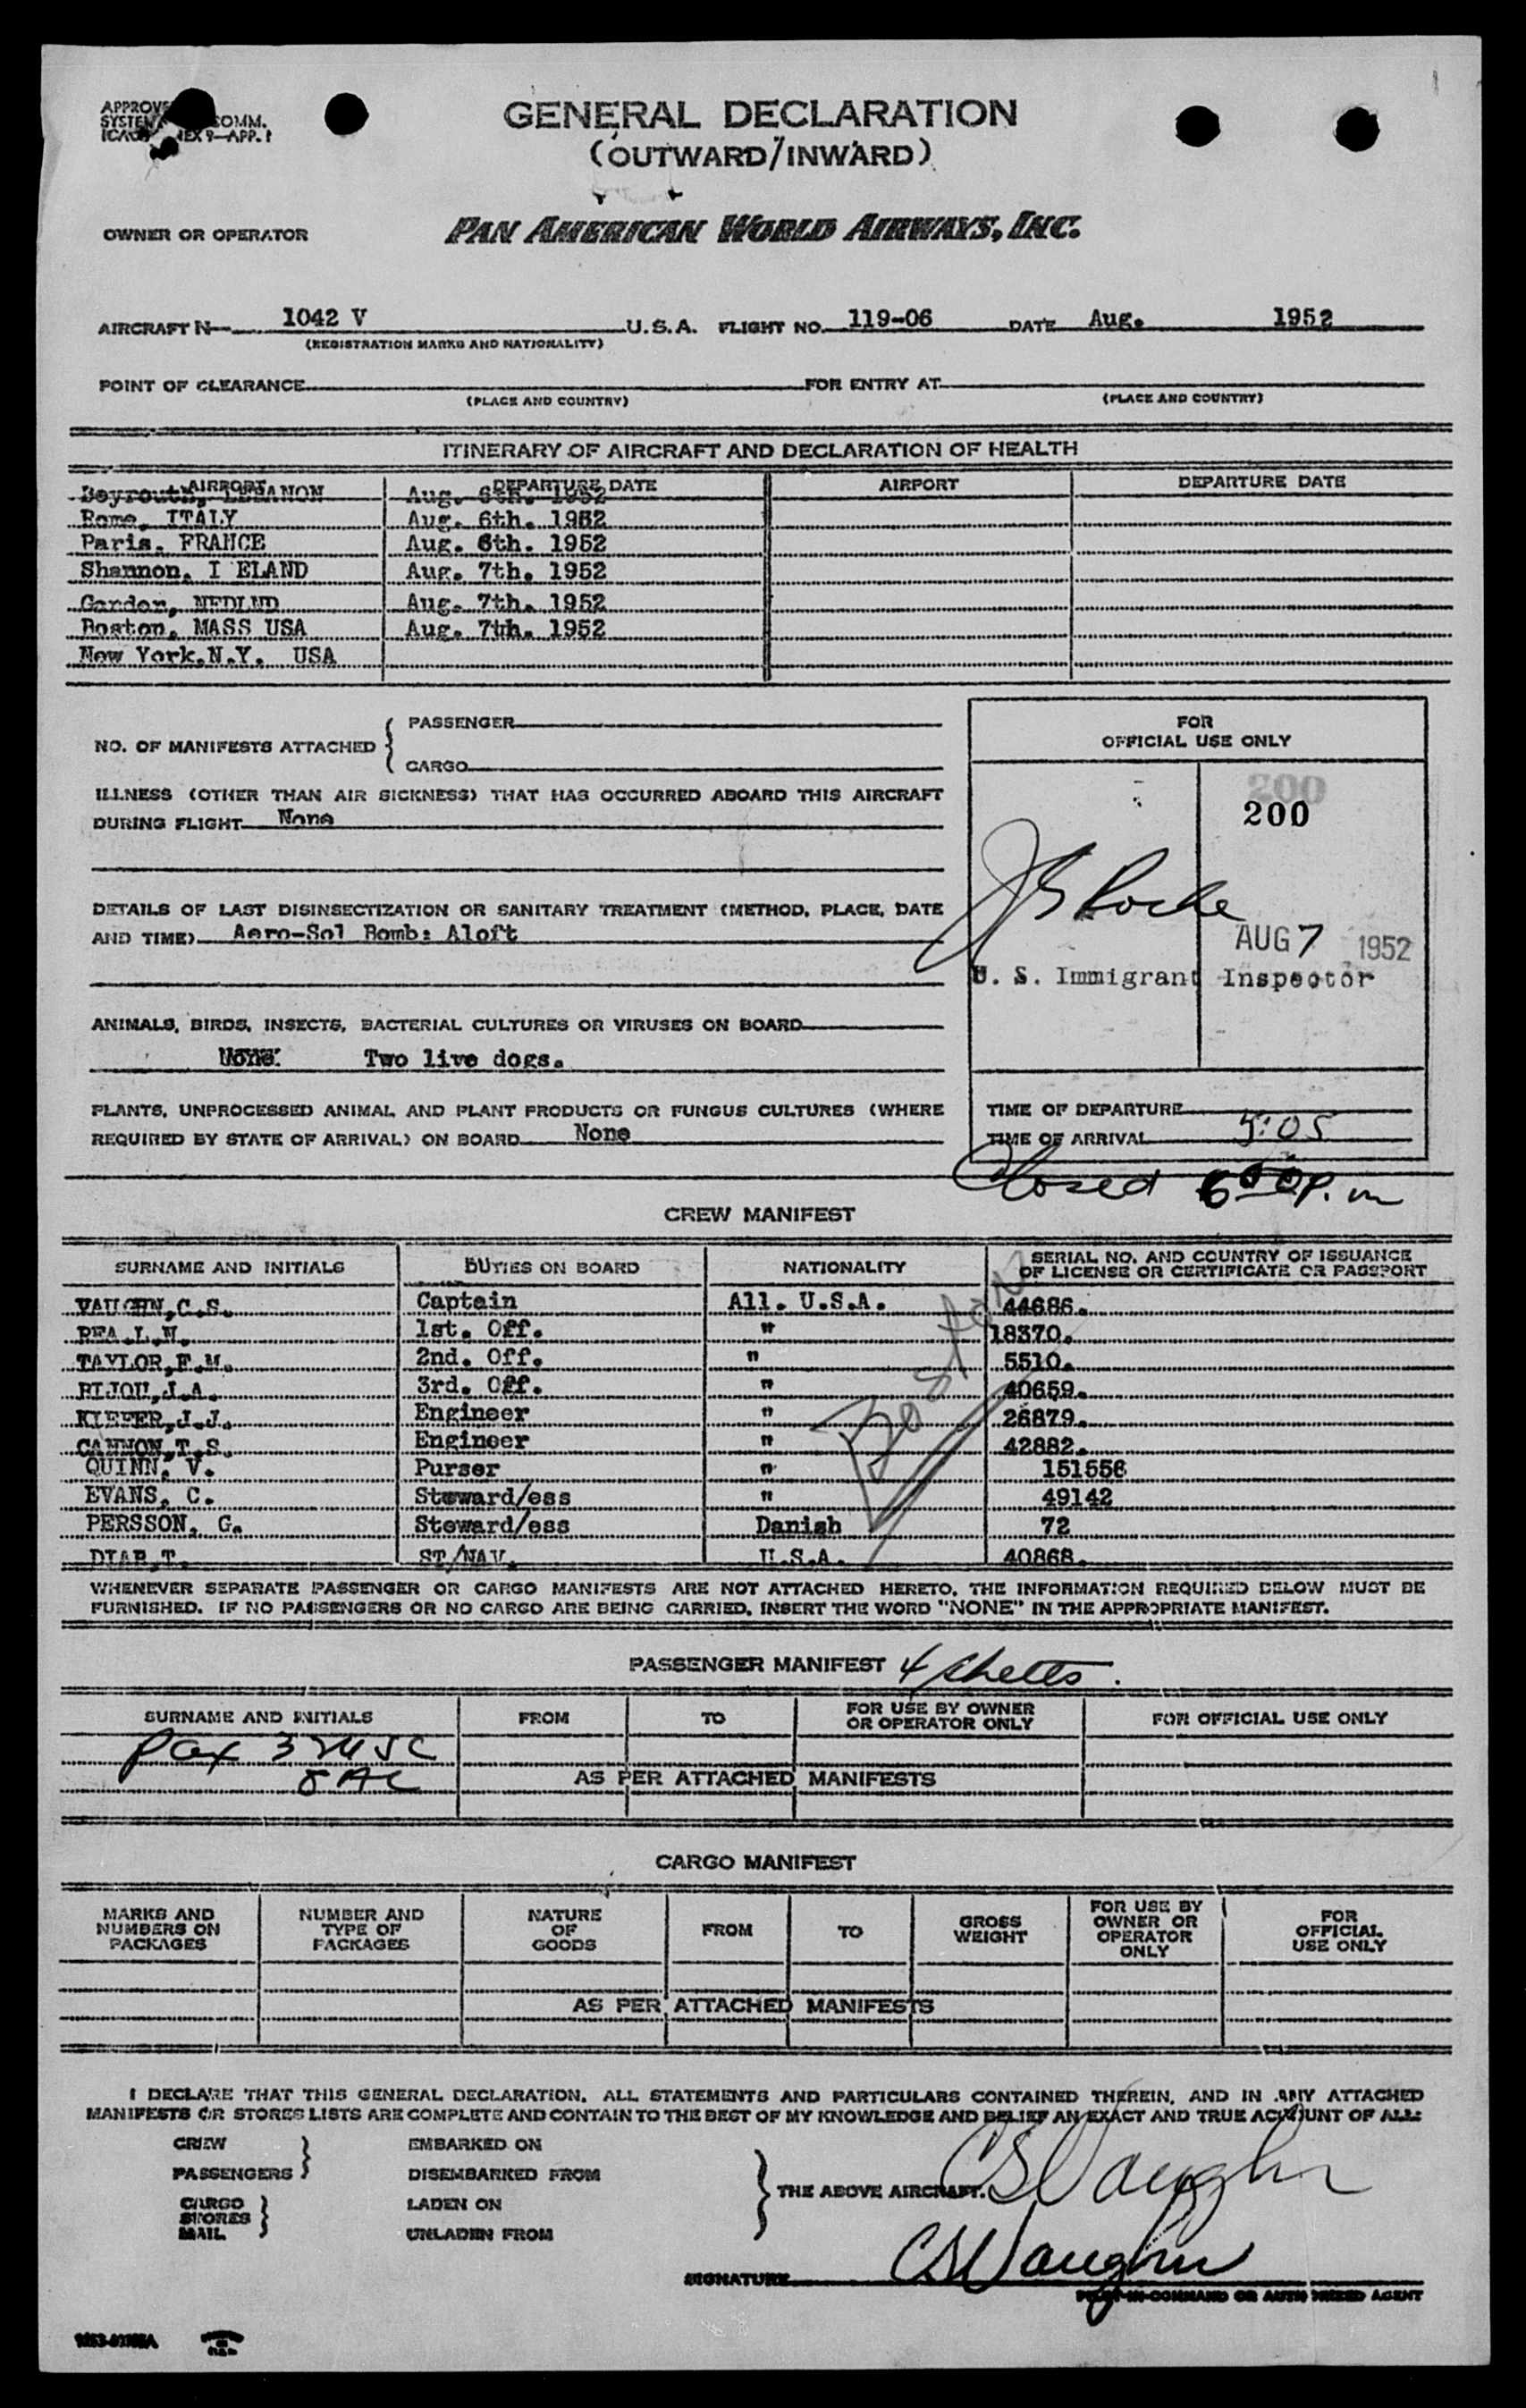 GENERAL DECLARATION
(OUTWARD/INWARD)
OWNER OR OPERATOR PAN AMERICAN WORLD AIRWAYS, INC.
AIRCRAFT N 1042 V U.S.A. FLIGHT NO. 119-06 DATE Aug. 1952
(REGISTRATION MARKS AND NATIONALITY)
POINT OF CLEARANCE FOR ENTRY AT
(PLACE AND COUNTRY) (PLACE AND COUNTRY)
ITINERARY OF AIRCRAFT AND DECLARATION OF HEALTH
AIRPORT DEPARTURE DATE AIRPORT DEPARTURE DATE
Beyrouth, LEBANON Aug. 6th. 1952
Rome, ITALY Aug. 6th. 1952
Paris. FRANCE Aug. 6th. 1952
Shannon. I ELAND Aug. 7th. 1952
Gander, NFDLND Aug. 7th. 1952
Boston. MASS USA Aug. 7th. 1952
New York.N.Y. USA
NO. OF MANIFESTS ATTACHED
PASSENGER
CARGO
ILLNESS (OTHER THAN AIR SICKNESS) THAT HAS OCCURRED ABOARD THIS AIRCRAFT
DURING FLIGHT None
DETAILS OF LAST DISINSECTIZATION OR SANITARY TREATMENT (METHOD, PLACE, DATE
AND TIME) Aero-Sol Bomb: Aloft
ANIMALS, BIRDS, INSECTS, BACTERIAL CULTURES OR VIRUSES ON BOARD
None Two live dogs.
PLANTS, UNPROCESSED ANIMAL AND PLANT PRODUCTS OR FUNGUS CULTURES (WHERE
REQUIRED BY STATE OF ARRIVAL) ON BOARD None
FOR
OFFICIAL USE ONLY
200
200
AUG 7 1952
U. S. Immigrant Inspector
TIME OF DEPARTURE
TIME OF ARRIVAL 5:05
Closed 6 00 p.m
CREW MANIFEST
SURNAME AND INITIALS DUTIES ON BOARD NATIONALITY SERIAL NO. AND COUNTRY OF ISSUANCE
OF LICENSE OR CERTIFICATE OR PASSPORT
VAUGHN,C.S. Captain All. U.S.A. 44686.
REA.L.N. 1st. Off. " 18370.
TAYLOR,F.M. 2nd. Off. " 5510.
BIJOU,J.A. 3rd. Off. " 40659.
KIEFER,J.J. Engineer " 26879.
CANNON,T.S. Engineer " 42882.
QUINN, V. Purser " 151556
EVANS, C. Steward/ess " 49142
PERSSON, G. Steward/ess Danish 72
DIAB,T. ST/NAV. U.S.A. 40868.
Boston
WHENEVER SEPARATE PASSENGER OR CARGO MANIFESTS ARE NOT ATTACHED HERETO, THE INFORMATION REQUIRED BELOW MUST BE
FURNISHED. IF NO PASSENGERS OR NO CARGO ARE BEING CARRIED, INSERT THE WORD "NONE" IN THE APPROPRIATE MANIFEST.
PASSENGER MANIFEST 4
SURNAME AND INITIALS FROM TO FOR USE BY OWNER
OR OPERATOR ONLY FOR OFFICIAL USE ONLY
Pax
AS PER ATTACHED MANIFESTS
CARGO MANIFEST
MARKS AND
NUMBERS ON
PACKAGES
NUMBER AND
TYPE OF
PACKAGES
NATURE
OF
GOODS
FROM
TO
GROSS
WEIGHT
FOR USE BY
OWNER OR
OPERATOR
ONLY
FOR
OFFICIAL
USE ONLY
AS PER ATTACHED MANIFESTS
I DECLARE THAT THIS GENERAL DECLARATION, ALL STATEMENTS AND PARTICULARS CONTAINED THEREIN, AND IN ANY ATTACHED
MANIFESTS OR STORES LISTS ARE COMPLETE AND CONTAIN TO THE BEST OF MY KNOWLEDGE AND BELIEF AN EXACT AND TRUE ACCOUNT OF ALL:
CREW
PASSENGERS
CARGO
STORES
MAIL
EMBARKED ON
DISEMBARKED FROM
LADEN ON
UNLADEN FROM
THE ABOVE AIRCRAFT.
CSVaughn
SIGNATURE CSVaughn
PILOT-IN-COMMAND OR AUTHORIZED AGENT